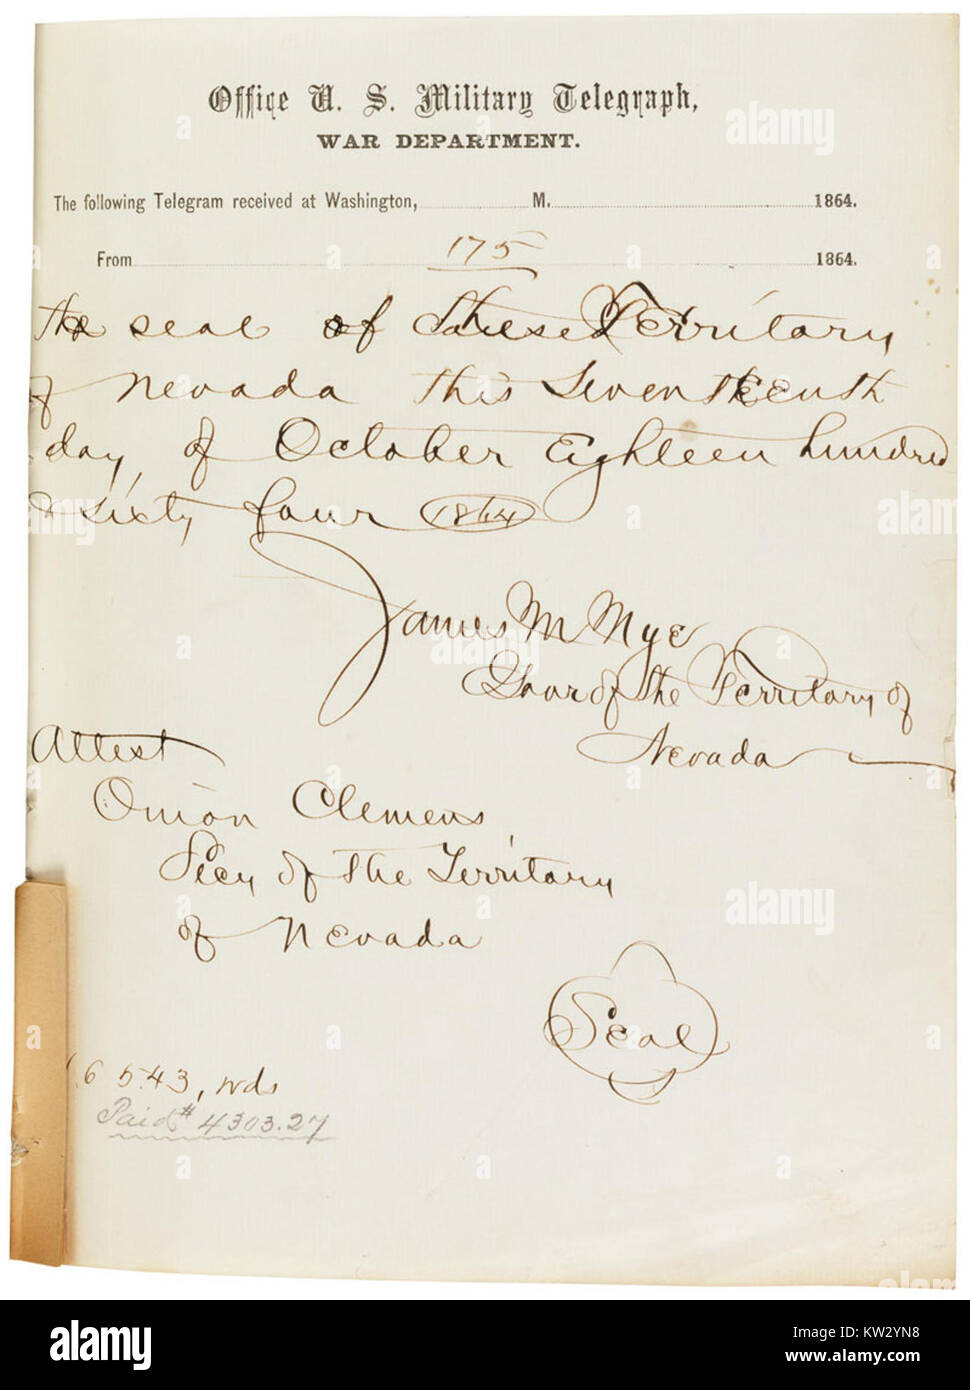 Office U. S. Military Telegraph,
WAR DEPARTMENT.
The following Telegram received at Washington, M. 1864.
From 175 1864.
the seal of these Territory
of Nevada this Seventeenth
day, of October Eighteen hundred
& sixty four 1864
James M Nye
Govr of the Territory of
Nevada
Attest
Orion Clemens,
Secy of the Territory
of Nevada
Seal
16 543, wds
Paid # 4303.27
alamy
a
alamy
Image ID: KW2YN8
www.alamy.com